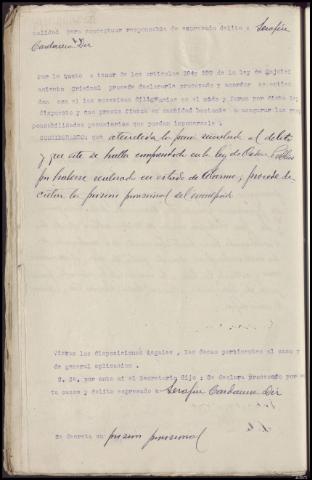 calidad para conceptuar responsable de expresado delito a Serafin
Cardauns Dir
por lo tanto a tenor de los articulos 384; 589 de la ley de Enjuici
amiento criminal procede declararle procesado y acordar se entien
dan con el las sucesivas diligencias en el modo y forma por dicha ley
dispuesto y que preste fianza en cantidad bastante a asegurar las res
ponsabilidades pecuniarias que puedan imponersele.
CONSIDERANDO que atendida la pena señalada al delito
y que este se halla comprendido en la ley de Orden Público
por haberse realizado en estado de alarma; procede de
cretar la prision provisional del inculpado
Vistas las disposiciones legales, las demas pertinentes al caso y
de general aplicacion.
S. Sª. por ante mi el Secretario dijo: Se declara procesado por es
ta causa y delito expresado a Serafin Cardauns Dir
Se decreta su prision provisional